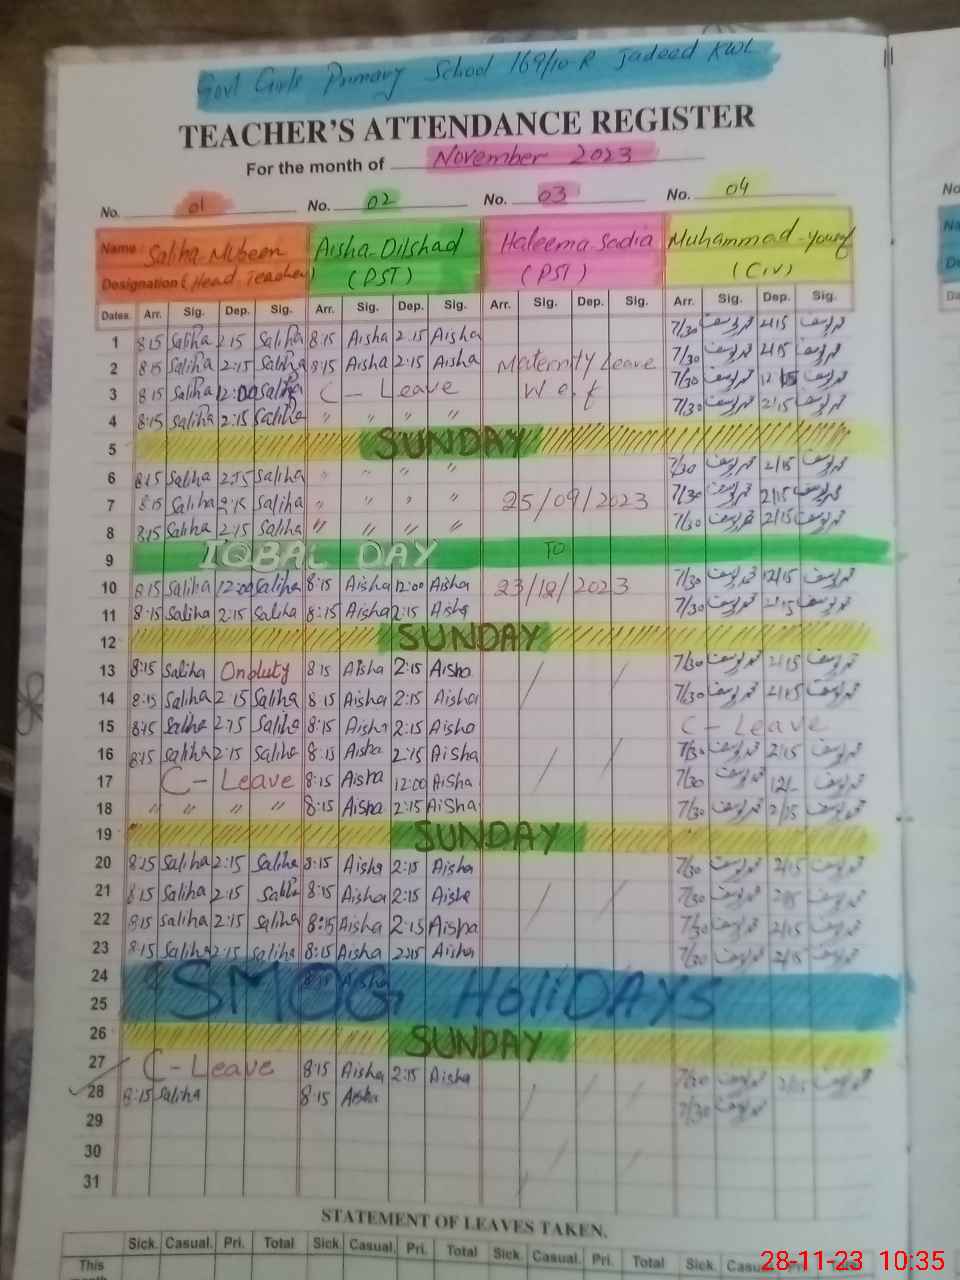 Govt Girls Primary School 169/10-R Jadeed KWL
TEACHER'S ATTENDANCE REGISTER
For the month of November 2023
No. 01 No. 02 No. 03 No. 04
Name: Saliha Mubeen Aisha-Dilshad Haleema Sadia Muhammad-Yousaf
Designation (Head Teacher) (PST) (PST) (Civ)
Dates Arr. Sig. Dep. Sig. Arr. Sig. Dep. Sig. Arr. Sig. Dep. Sig. Arr. Sig. Dep. Sig.
1 8:15 Saliha 2:15 Saliha 8:15 Aisha 2:15 Aisha 7/30 محمد یوسف 2/15 محمد یوسف
2 8:15 Saliha 2:15 Saliha 8:15 Aisha 2:15 Aisha Maternity Leave 7/30 محمد یوسف 2/15 محمد یوسف
3 8:15 Saliha 12:00 Saliha C - Leave w.e.f 7/30 محمد یوسف 12 15 محمد یوسف
4 8:15 Saliha 2:15 Saliha " " " " 7/30 محمد یوسف 2/15 محمد یوسف
5 SUNDAY
6 8:15 Saliha 2:15 Saliha " " " " 7/30 محمد یوسف 2/15 محمد یوسف
7 8:15 Saliha 2:15 Saliha " " " " 25/09/2023 7/30 محمد یوسف 2/15 محمد یوسف
8 8:15 Saliha 2:15 Saliha " " " " 7/30 محمد یوسف 2/15 محمد یوسف
9 IQBAL DAY TO
10 8:15 Saliha 12:00 Saliha 8:15 Aisha 12:00 Aisha 23/12/2023 7/30 محمد یوسف 12/15 محمد یوسف
11 8:15 Saliha 2:15 Saliha 8:15 Aisha 2:15 Aisha 7/30 محمد یوسف 2/15 محمد یوسف
12 SUNDAY
13 8:15 Saliha On duty 8:15 Aisha 2:15 Aisha / / 7/30 محمد یوسف 2/15 محمد یوسف
14 8:15 Saliha 2:15 Saliha 8:15 Aisha 2:15 Aisha 7/30 محمد یوسف 2/15 محمد یوسف
15 8:15 Saliha 2:15 Saliha 8:15 Aisha 2:15 Aisha C - Leave
16 8:15 Saliha 2:15 Saliha 8:15 Aisha 2:15 Aisha / / 7/30 محمد یوسف 2/15 محمد یوسف
17 C - Leave 8:15 Aisha 12:00 Aisha 7/30 محمد یوسف 12/- محمد یوسف
18 " " " " 8:15 Aisha 2:15 Aisha 7/30 محمد یوسف 2/15 محمد یوسف
19 SUNDAY
20 8:15 Saliha 2:15 Saliha 8:15 Aisha 2:15 Aisha 7/30 محمد یوسف 2/15 محمد یوسف
21 8:15 Saliha 2:15 Saliha 8:15 Aisha 2:15 Aisha / / 7/30 محمد یوسف 2/15 محمد یوسف
22 8:15 Saliha 2:15 Saliha 8:15 Aisha 2:15 Aisha 7/30 محمد یوسف 2/15 محمد یوسف
23 8:15 Saliha 2:15 Saliha 8:15 Aisha 2:15 Aisha 7/30 محمد یوسف 2/15 محمد یوسف
24 Aisha
25 SMOG HoliDAYS
26 SUNDAY
27 C - Leave 8:15 Aisha 2:15 Aisha 7/30 محمد یوسف 2/15 محمد یوسف
28 8:15 Saliha 8:15 Aisha / / / 7/30 محمد یوسف
29
30
31
STATEMENT OF LEAVES TAKEN.
Sick. Casual. Pri. Total Sick. Casual. Pri. Total Sick. Casual. Pri. Total Sick.
This
28-11-23 10:35